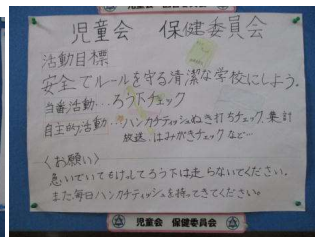 児童会 保健委員会
活動目標
安全でルールを守る清潔な学校にしよう。
当番活動…ろう下チェック
自主的活動…ハンカチティッシュぬき打ちチェック、集計
放送、はみがきチェックなど…
〈お願い〉
急いでいてもけっしてろう下は走らないでください。
また毎日ハンカチティッシュを持ってきてください。
児童会 保健委員会